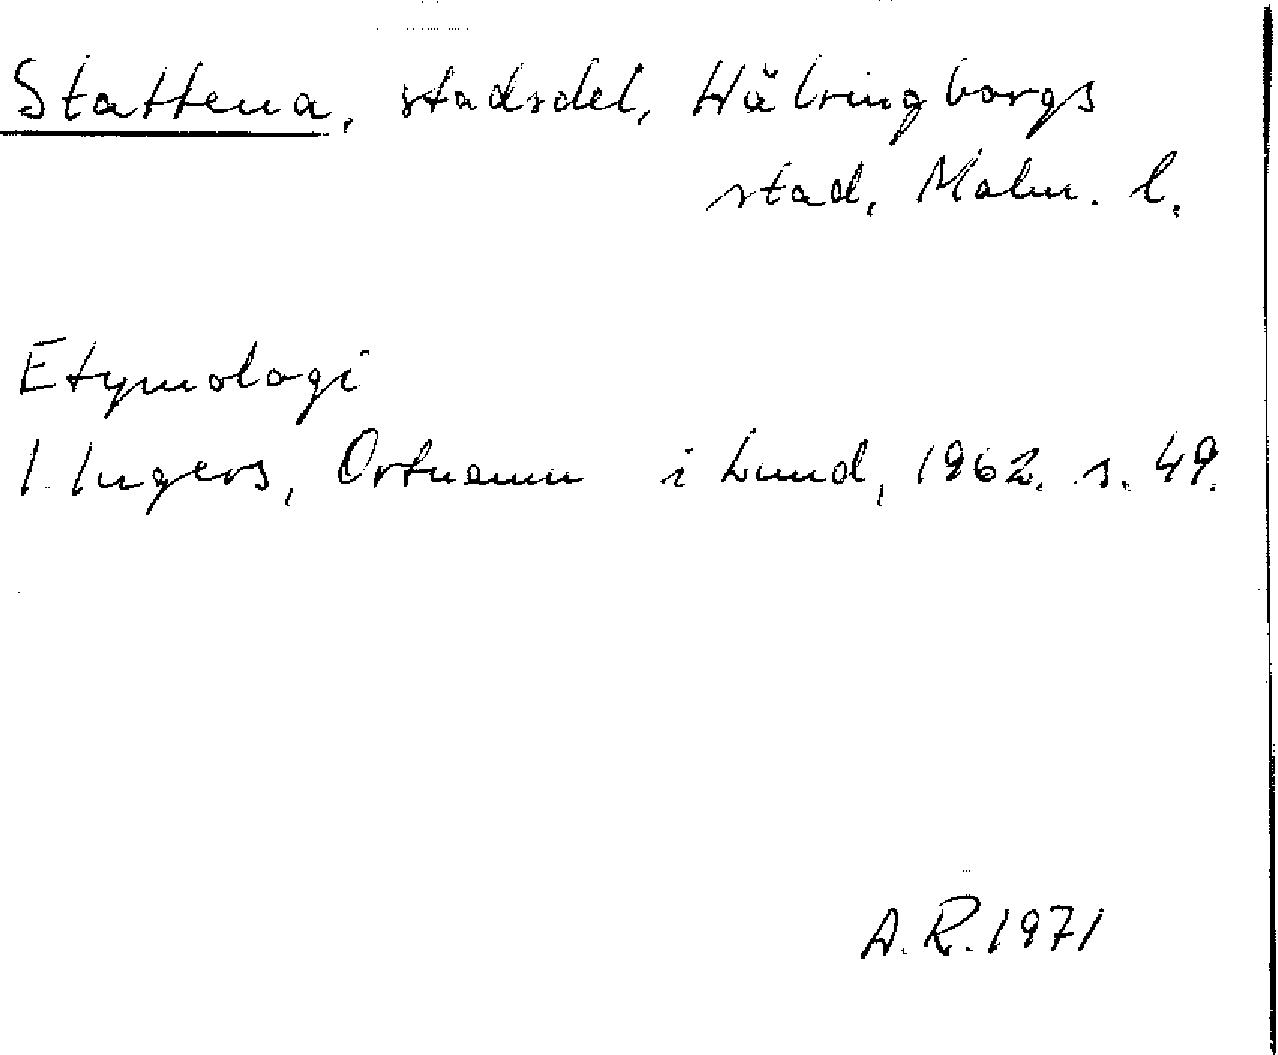 Stattena, stadsdel, Hälsingborgs
stad, Malm. l.
Etymologi
I. Ingers, Ortnamn i Lund, 1962. s. 49.
A. R. 1971